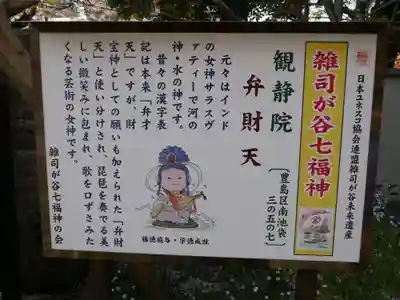 日本ユネスコ協会連盟雑司が谷未来遺産
雑司が谷七福神
観静院
[豊島区南池袋
三の五の七]
弁財天
元々はインド
の女神サラスヴ
ァティーで河の
神・水の神です。
昔々の漢字表
記は本来「弁才
天」ですが、財
宝神としての願いも加えられた「弁財
天」と使い分けされ、琵琶を奏でる美
しい微笑みに包まれ、歌を口ずさみた
くなる芸術の女神です。
雑司が谷七福神の会
福徳施与・学徳成就